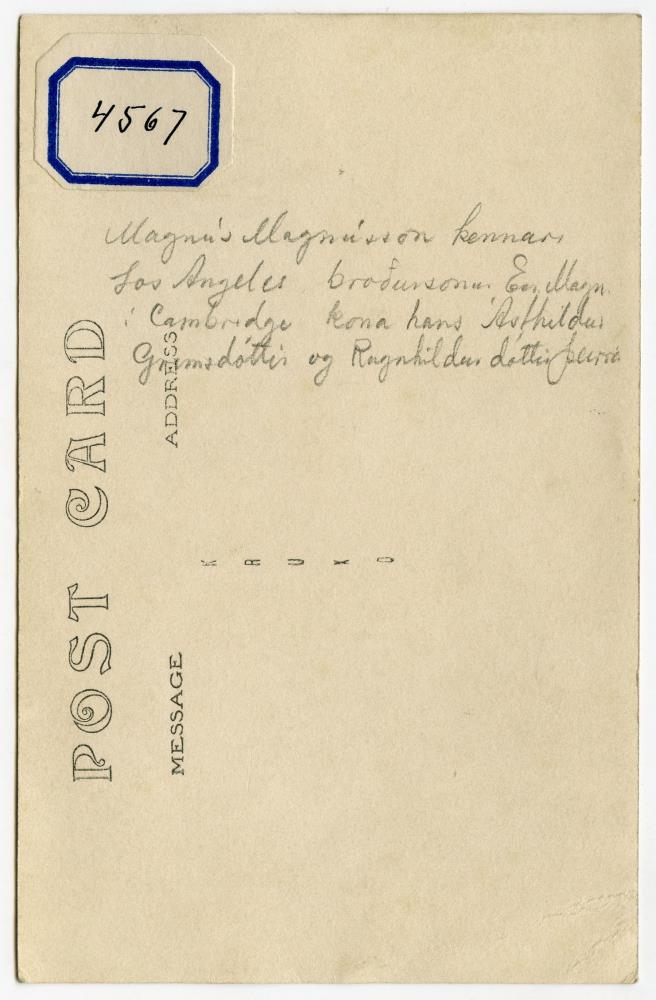 4567
Magnús Magnússon kennari
Los Angeles bróðursonur Eir. Magn.
í Cambridge kona hans Ásthildur
Grímsdóttir og Ragnhildur dóttir þeirra
POST CARD
ADDRESS
MESSAGE
KRUXO